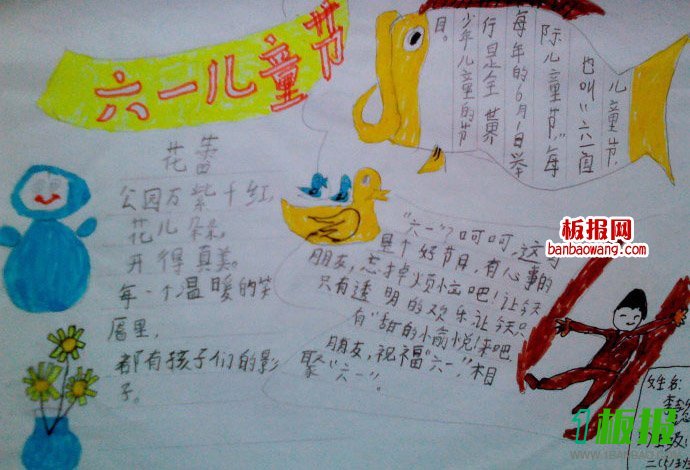 六一儿童节
花蕾
公园万紫千红,
花儿朵朵,
开得真美。
每一个温暖的笑
唇里,
都有孩子们的影
子。
儿童节,
也叫"六一国
际儿童节",每
每年的6月1日举
行是全世界
少年儿童的节
目。
"六一"呵呵,这
是个好节日,有心事的
朋友,忘掉烦恼吧!让今天
只有透明的欢乐让今天只
有"甜的愉悦!来吧
朋友,祝福"六一",相
聚"六一"。
板报网
banbaowang.com
姓名:
李
班级:
板报
WWW.1BANBAO.COM